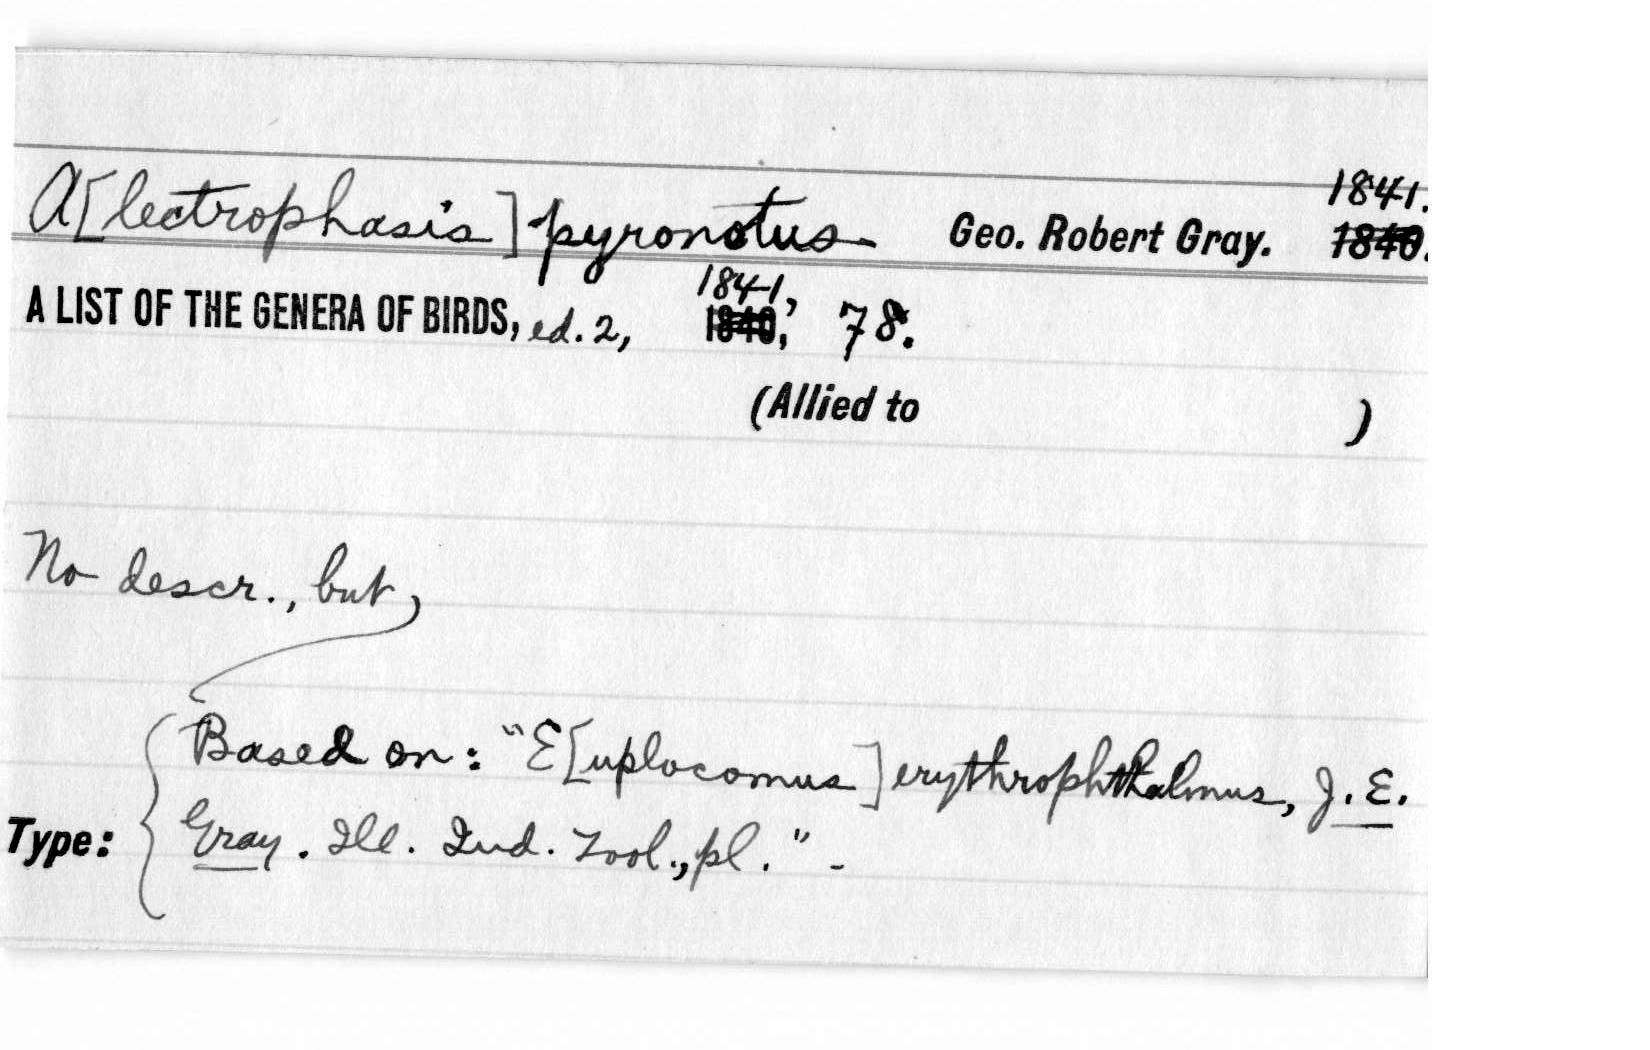 1841.
A[lectrophasis] pyronotus Geo. Robert Gray. 1840.
1841,
A LIST OF THE GENERA OF BIRDS, ed. 2, 1840, 78.
(Allied to )
No descr., but,
Based on: "E[uplocomus] erythrophthalmus, J. E.
Type: Gray. Ill. Ind. Zool., pl." -